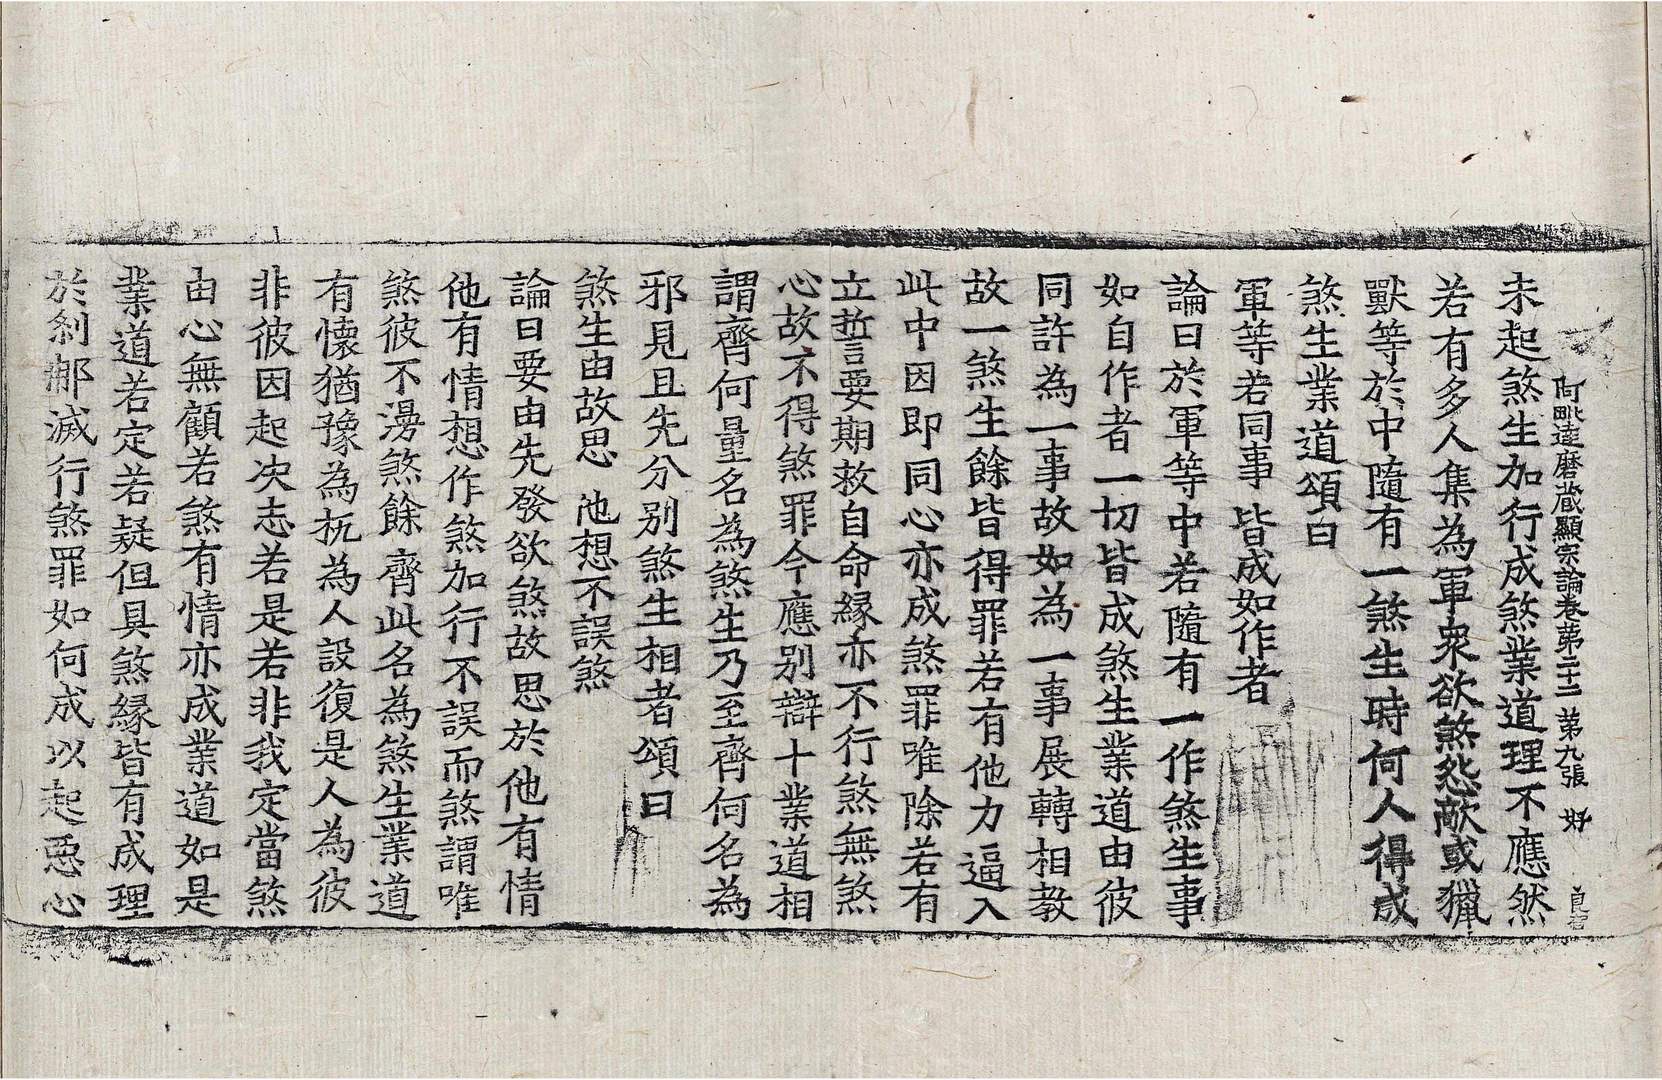 阿毗達磨藏顯宗論卷第二十二 第九張 好
未起煞生加行成煞業道理不應然
若有多人集為軍衆欲煞怨敵或獵
獸等於中隨有一煞生時何人得成
煞生業道頌曰
軍等若同事 皆成如作者
論曰於軍等中若隨有一作煞生事
如自作者一切皆成煞生業道由彼
同許為一事故如為一事展轉相教
故一煞生餘皆得罪若有他力逼入
此中因即同心亦成煞罪唯除若有
立誓要期救自命緣亦不行煞無煞
心故不得煞罪今應別辯十業道相
謂齊何量名為煞生乃至齊何名為
邪見且先分別煞生相者頌曰
煞生由故思 他想不誤煞
論曰要由先發欲煞故思於他有情
他有情想作煞加行不誤而煞謂唯
煞彼不漫煞餘齊此名為煞生業道
有懷猶豫為杌為人設復是人為彼
非彼因起決志若是若非我定當煞
由心無顧若煞有情亦成業道如是
業道若定若疑但具煞緣皆有成理
於剎那滅行煞罪如何成以起惡心